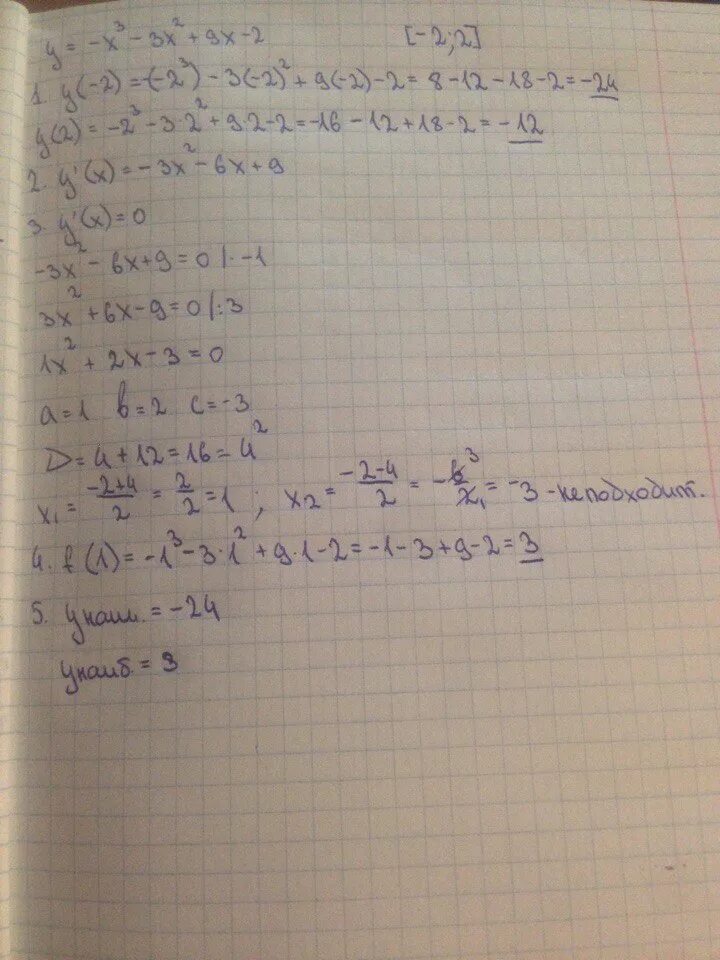 y = -x³ - 3x² + 9x - 2 [-2;2]
1. y(-2) = (-2³) - 3(-2)² + 9(-2) - 2 = 8 - 12 - 18 - 2 = -24
y(2) = -2³ - 3·2² + 9·2 - 2 = -16 - 12 + 18 - 2 = -12
2. y'(x) = -3x² - 6x + 9
3. y'(x) = 0
-3x² - 6x + 9 = 0 |· -1
3x² + 6x - 9 = 0 |:3
1x² + 2x - 3 = 0
a = 1 b = 2 c = -3
D = 4 + 12 = 16 = 4²
x₁ = (-2+4)/2 = 2/2 = 1 ; x₂ = (-2-4)/2 = -6³/2₁ = -3 - не подходит.
4. f(1) = -1³ - 3·1² + 9·1 - 2 = -1 - 3 + 9 - 2 = 3
5. y наим. = -24
y наиб. = 3